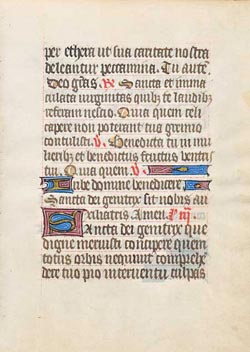 per ethera ut sua caritate nostra
deleantur peccamina. Tu aute
Deo gras. R Sancta et imma
culata virginitas quibz te laudibz
referam nescio. Quia quem celi
capere non poterant tuo gremio
contulisti. V. Benedicta tu in mu
lieribz et benedictus fructus ventris
tui. Quia quem. V.
Iube domine benedicere.
Sancta dei genitrix sit nobis au
xiliatrix. Amen.
Sancta dei genitrix que
digne meruisti concipere quem
totus orbis nequivit comprehe
dere tuo pio interventu culpas